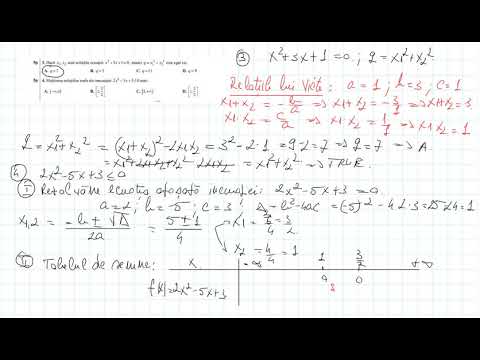 5p 3. Dacă x₁, x₂ sunt soluțiile ecuației x²+3x+1=0, atunci q = x₁²+x₂² este egal cu:
A. q=7 B. q=5 C. q=11 D. q=9
5p 4. Mulțimea soluțiilor reale ale inecuației 2x²-5x+3≤0 este:
③ x²+3x+1=0 ; q=x1²+x2²
Relațiile lui Viète: a=1; b=3; c=1
x1+x2=-b/a => x1+x2=-3/1 => x1+x2=3
x1·x2=c/a => x1·x2=1/1 => x1·x2=1
q=x1²+x2²=(x1+x2)²-2x1x2=3²-2·1=9-2=7 => q=7 => A.
=x1²+2x1x2+x2²-2x1x2=x1²+x2² => TRUE
④ 2x²-5x+3≤0
Ⓘ Rezolvăm ecuația atașată inecuației: 2x²-5x+3=0
a=2; b=-5; c=3; Δ=b²-4ac=(-5)²-4·2·3=25-24=1
x1,2=(-b±√Δ)/2a=(5±1)/4
x1=6/4=3/2
x2=4/4=1
Ⓘ Tabelul de semne:
x -∞ 1 3/2 +∞
f(x)=2x²-5x+3 0 0